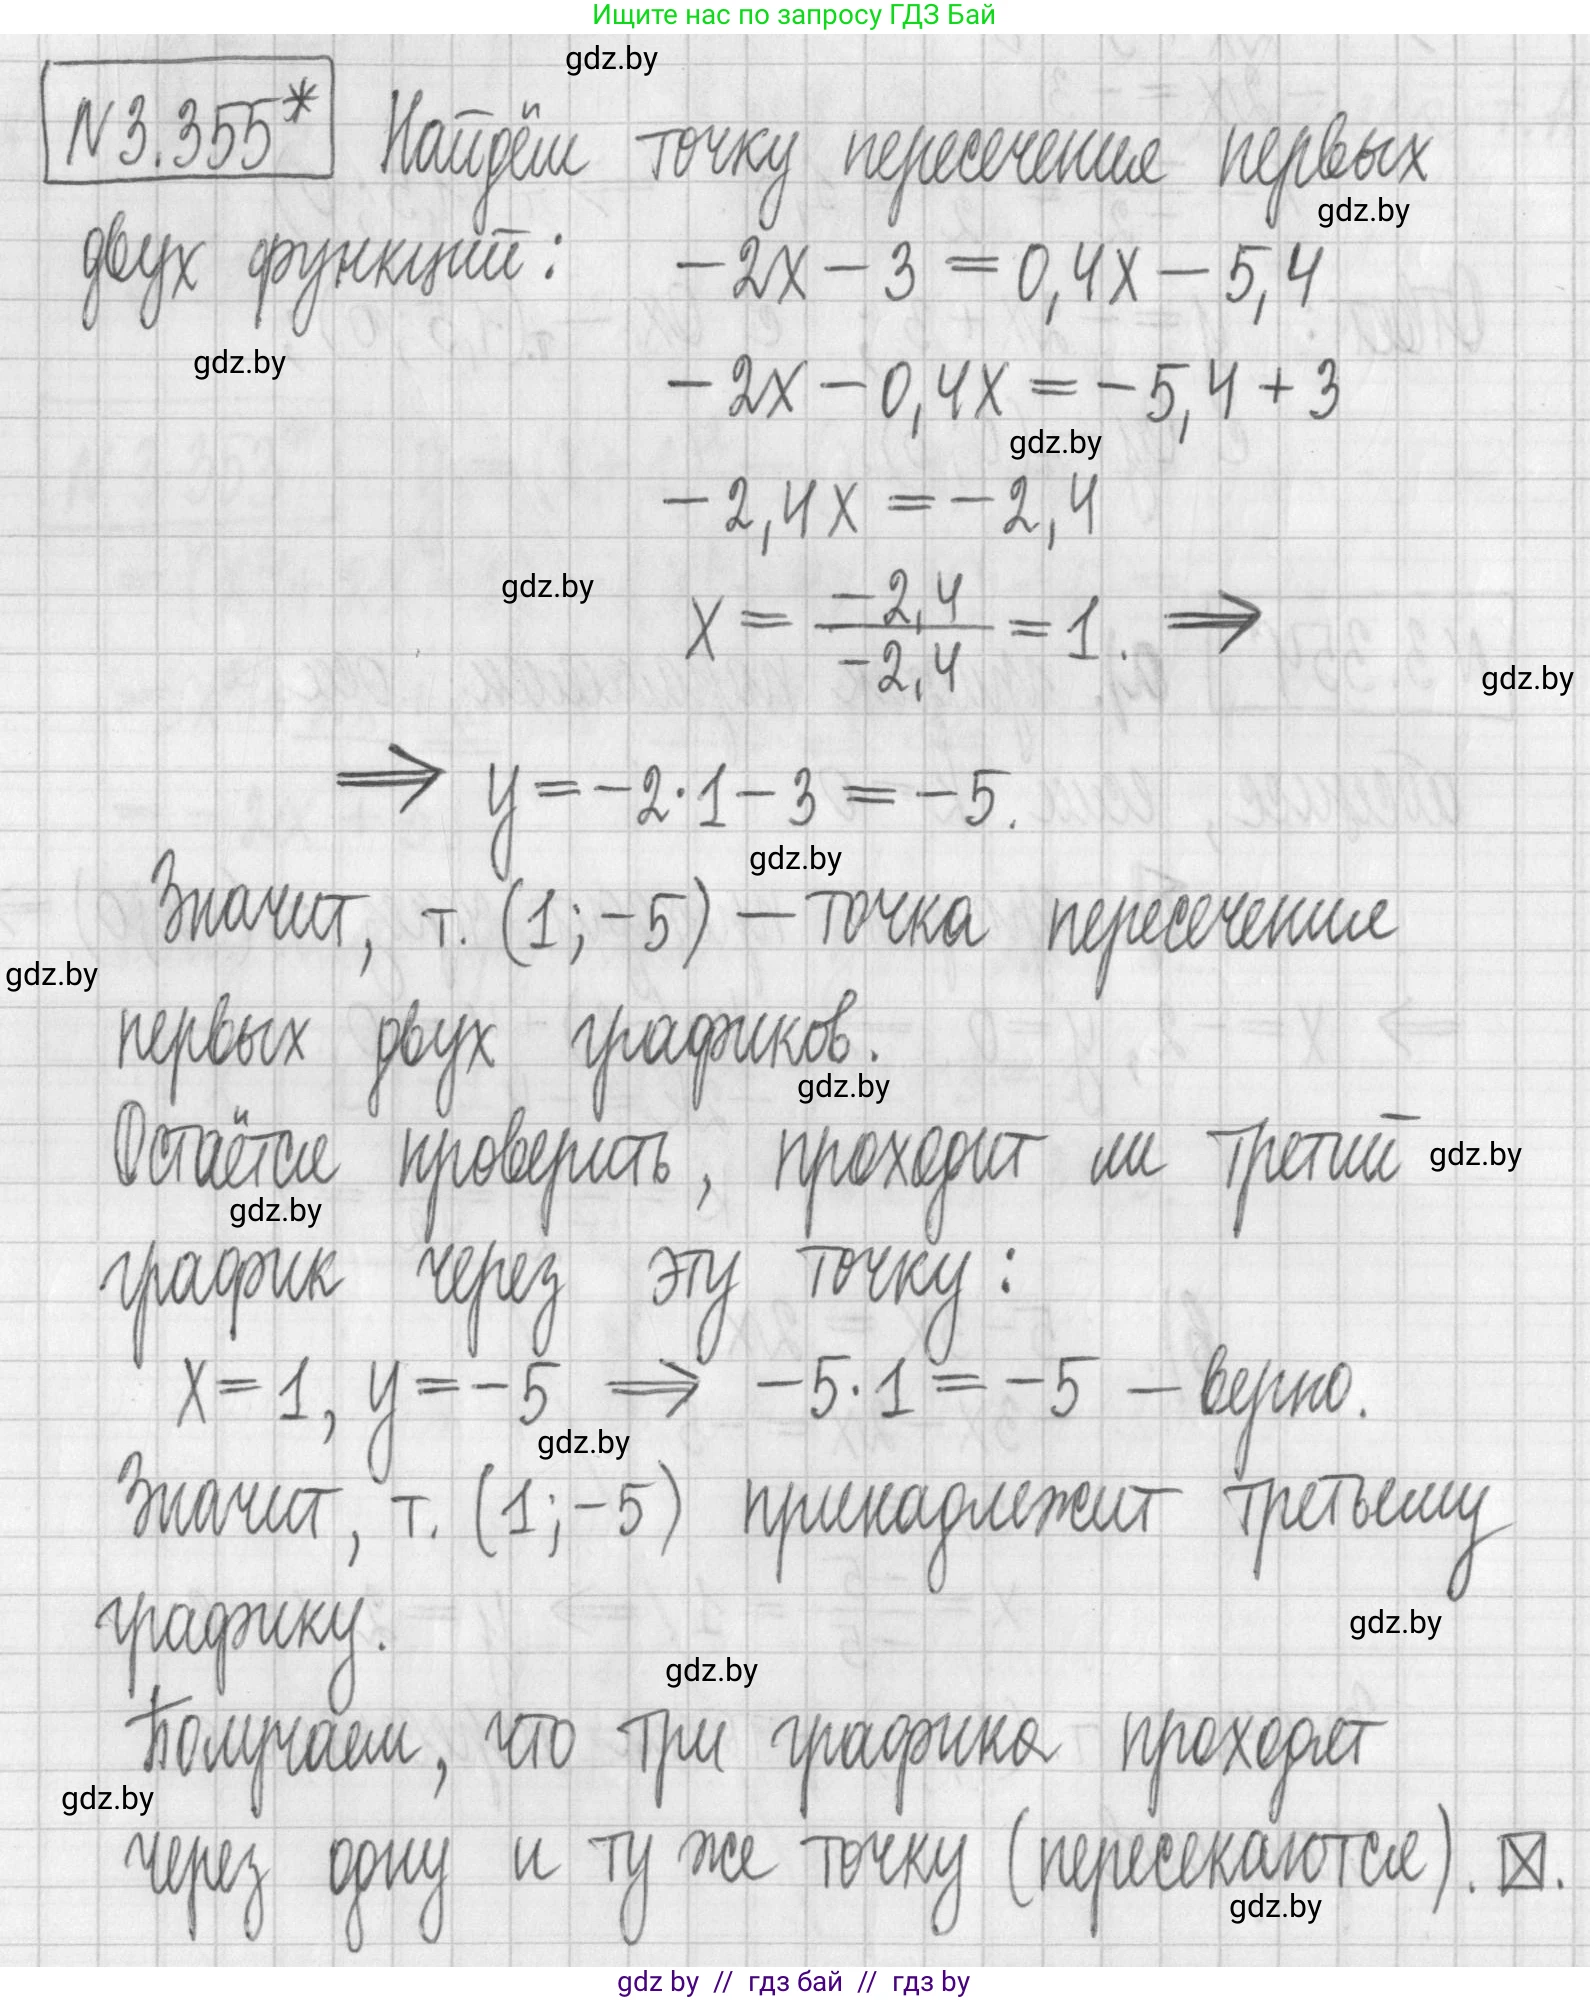 Ищите нас по запросу ГДЗ Бай
gdz.by
N3.355* Найдём точку пересечения первых
gdz.by
двух функций: -2x - 3 = 0,4x - 5,4
gdz.by
-2x - 0,4x = -5,4 + 3
gdz.by
-2,4x = -2,4
gdz.by
x = \frac{-2,4}{-2,4} = 1. ⇒
gdz.by
⇒ y = -2·1 - 3 = -5.
gdz.by
Значит, т. (1;-5) — точка пересечения
gdz.by
первых двух графиков.
gdz.by
Остаётся проверить, проходит ли третий
gdz.by
gdz.by
график через эту точку:
x = 1, y = -5 ⇒ -5·1 = -5 — верно.
gdz.by
Значит, т. (1;-5) принадлежит третьему
графику.
gdz.by
gdz.by
Получаем, что три графика проходят
gdz.by
через одну и ту же точку (пересекаются). ⊠.
gdz.by
gdz by // гдз бай // гдз by